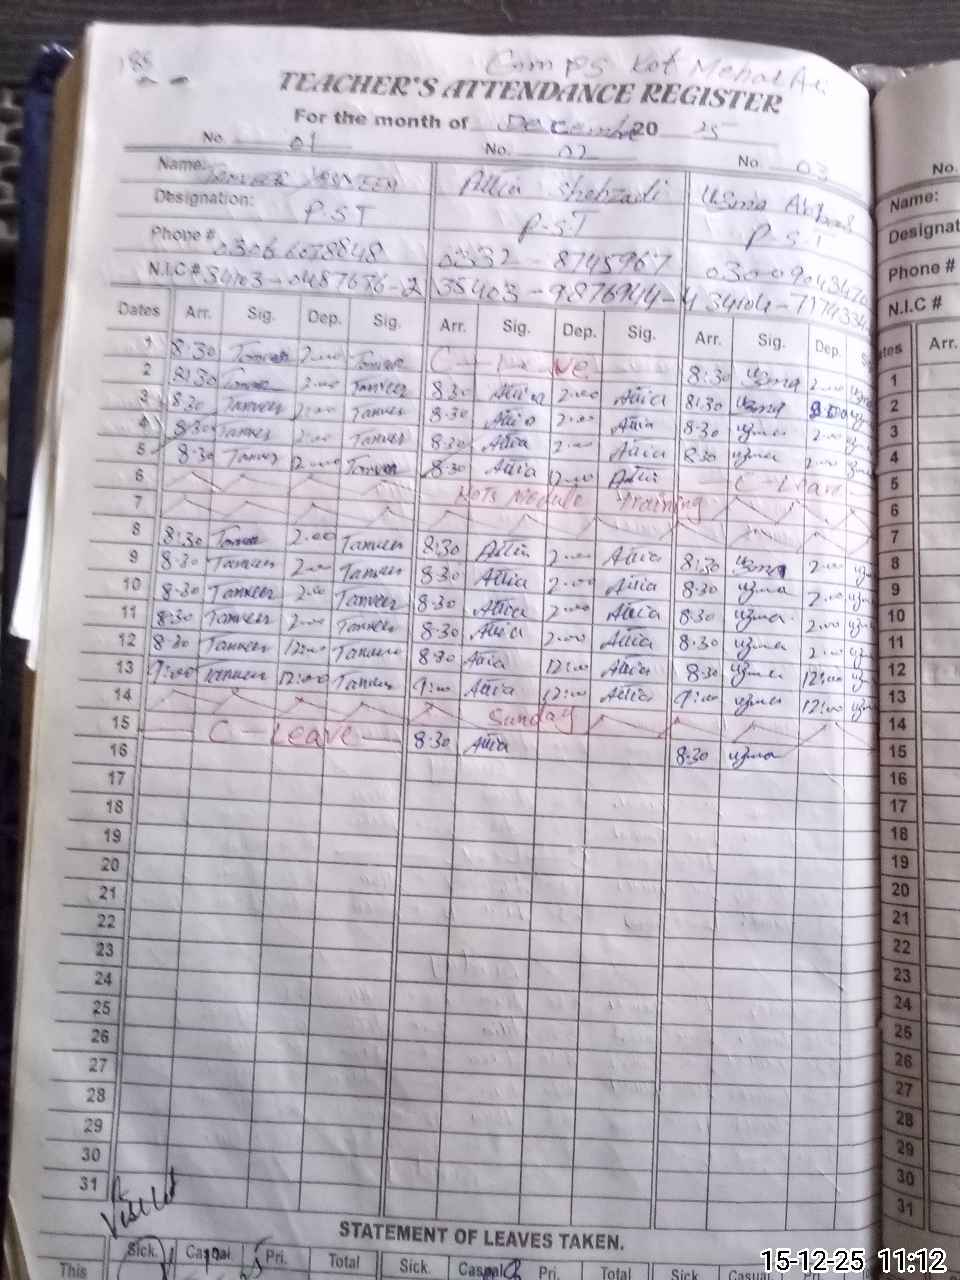 185
TEACHER'S ATTENDANCE REGISTER
For the month of December 2025
No. 01 No. 02 No. 03
Name: Attia Shehzadi Uzma
Designation: P.S.T P.S.T P.S.T
Phone # 0332 - 8745967
N.I.C #
Dates Arr. Sig. Dep. Sig. Arr. Sig. Dep. Sig. Arr. Sig. Dep.
1 8:30 Tanveer 2:00 Tanveer C - Leave 8:30 Uzma 2:00
2 8:30 Tanveer 2:00 Tanveer 8:30 Attia 2:00 Attia 8:30 Uzma
3 8:30 Tanveer 2:00 Tanveer 8:30 Attia 2:00 Attia 8:30 Uzma 2:00
4 8:30 Tanveer 2:00 Tanveer 8:30 Attia 2:00 Attia 8:30 Uzma 2:00
5 8:30 Tanveer 12:00 Tanveer 8:30 Attia 12:00 Attia C - Leave
6 Module Training
7
8 8:30 Tanveer 2:00 Tanveer 8:30 Attia 2:00 Attia 8:30 Uzma 2:00
9 8:30 Tanveer 2:00 Tanveer 8:30 Attia 2:00 Attia 8:30 Uzma 2:00
10 8:30 Tanveer 2:00 Tanveer 8:30 Attia 2:00 Attia 8:30 Uzma 2:00
11 8:30 Tanveer 2:00 Tanveer 8:30 Attia 2:00 Attia 8:30 Uzma 2:00
12 8:30 Tanveer 12:00 Tanveer 8:30 Attia 12:00 Attia 8:30 Uzma 12:00
13 9:00 Tanveer 12:00 Tanveer 9:00 Attia 12:00 Attia 9:00 Uzma 12:00
14 Sunday
15 C - Leave 8:30 Attia 8:30 Uzma
16
17
18
19
20
21
22
23
24
25
26
27
28
29
30
31
Visited
STATEMENT OF LEAVES TAKEN.
This Sick. Casual. Pri. Total Sick. Casual Pri. Total Sick. Casual Pri.
No.
Name:
Designat
Phone #
N.I.C #
ates Arr.
1
2
3
4
5
6
7
8
9
10
11
12
13
14
15
16
17
18
19
20
21
22
23
24
25
26
27
28
29
30
31
15-12-25 11:12